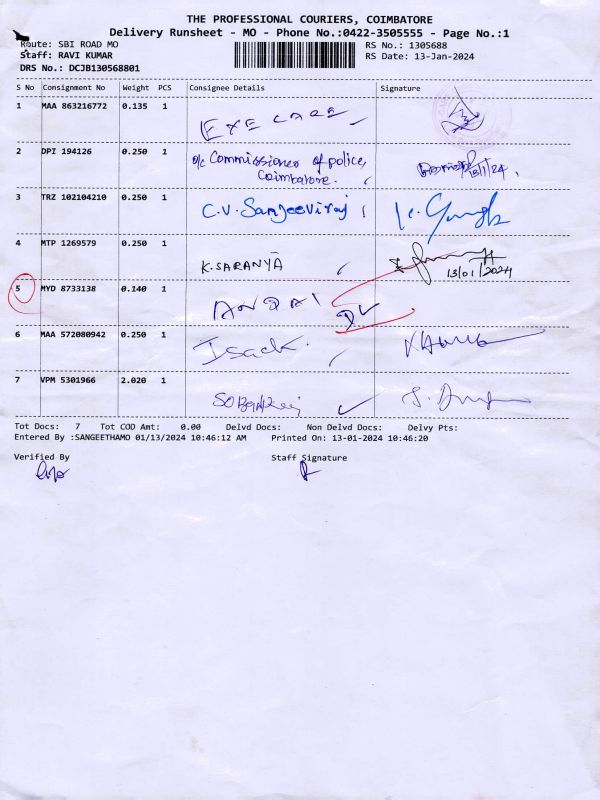 THE PROFESSIONAL COURIERS, COIMBATORE
Delivery Runsheet - MO - Phone No.:0422-3505555 - Page No.:1
Route: SBI ROAD MO
RS No.: 1305688
Staff: RAVI KUMAR
RS Date: 13-Jan-2024
DRS No.: DCJB130568801
S No Consignment No Weight PCS Consignee Details Signature
1 MAA 863216772 0.135 1
EXE CARE
2 DPI 194126 0.250 1 o/c Commissioner of police,
Coimbatore. 13/1/24.
3 TRZ 102104210 0.250 1
C.V. Sanjeeviraj
4 MTP 1269579 0.250 1
K.SARANYA 13/01/2024
5 MYD 8733138 0.140 1
6 MAA 572080942 0.250 1
Isack.
7 VPM 5301966 2.020 1
Tot Docs: 7 Tot COD Amt: 0.00 Delvd Docs: Non Delvd Docs: Delvy Pts:
Entered By :SANGEETHAMO 01/13/2024 10:46:12 AM Printed On: 13-01-2024 10:46:20
Verified By Staff Signature